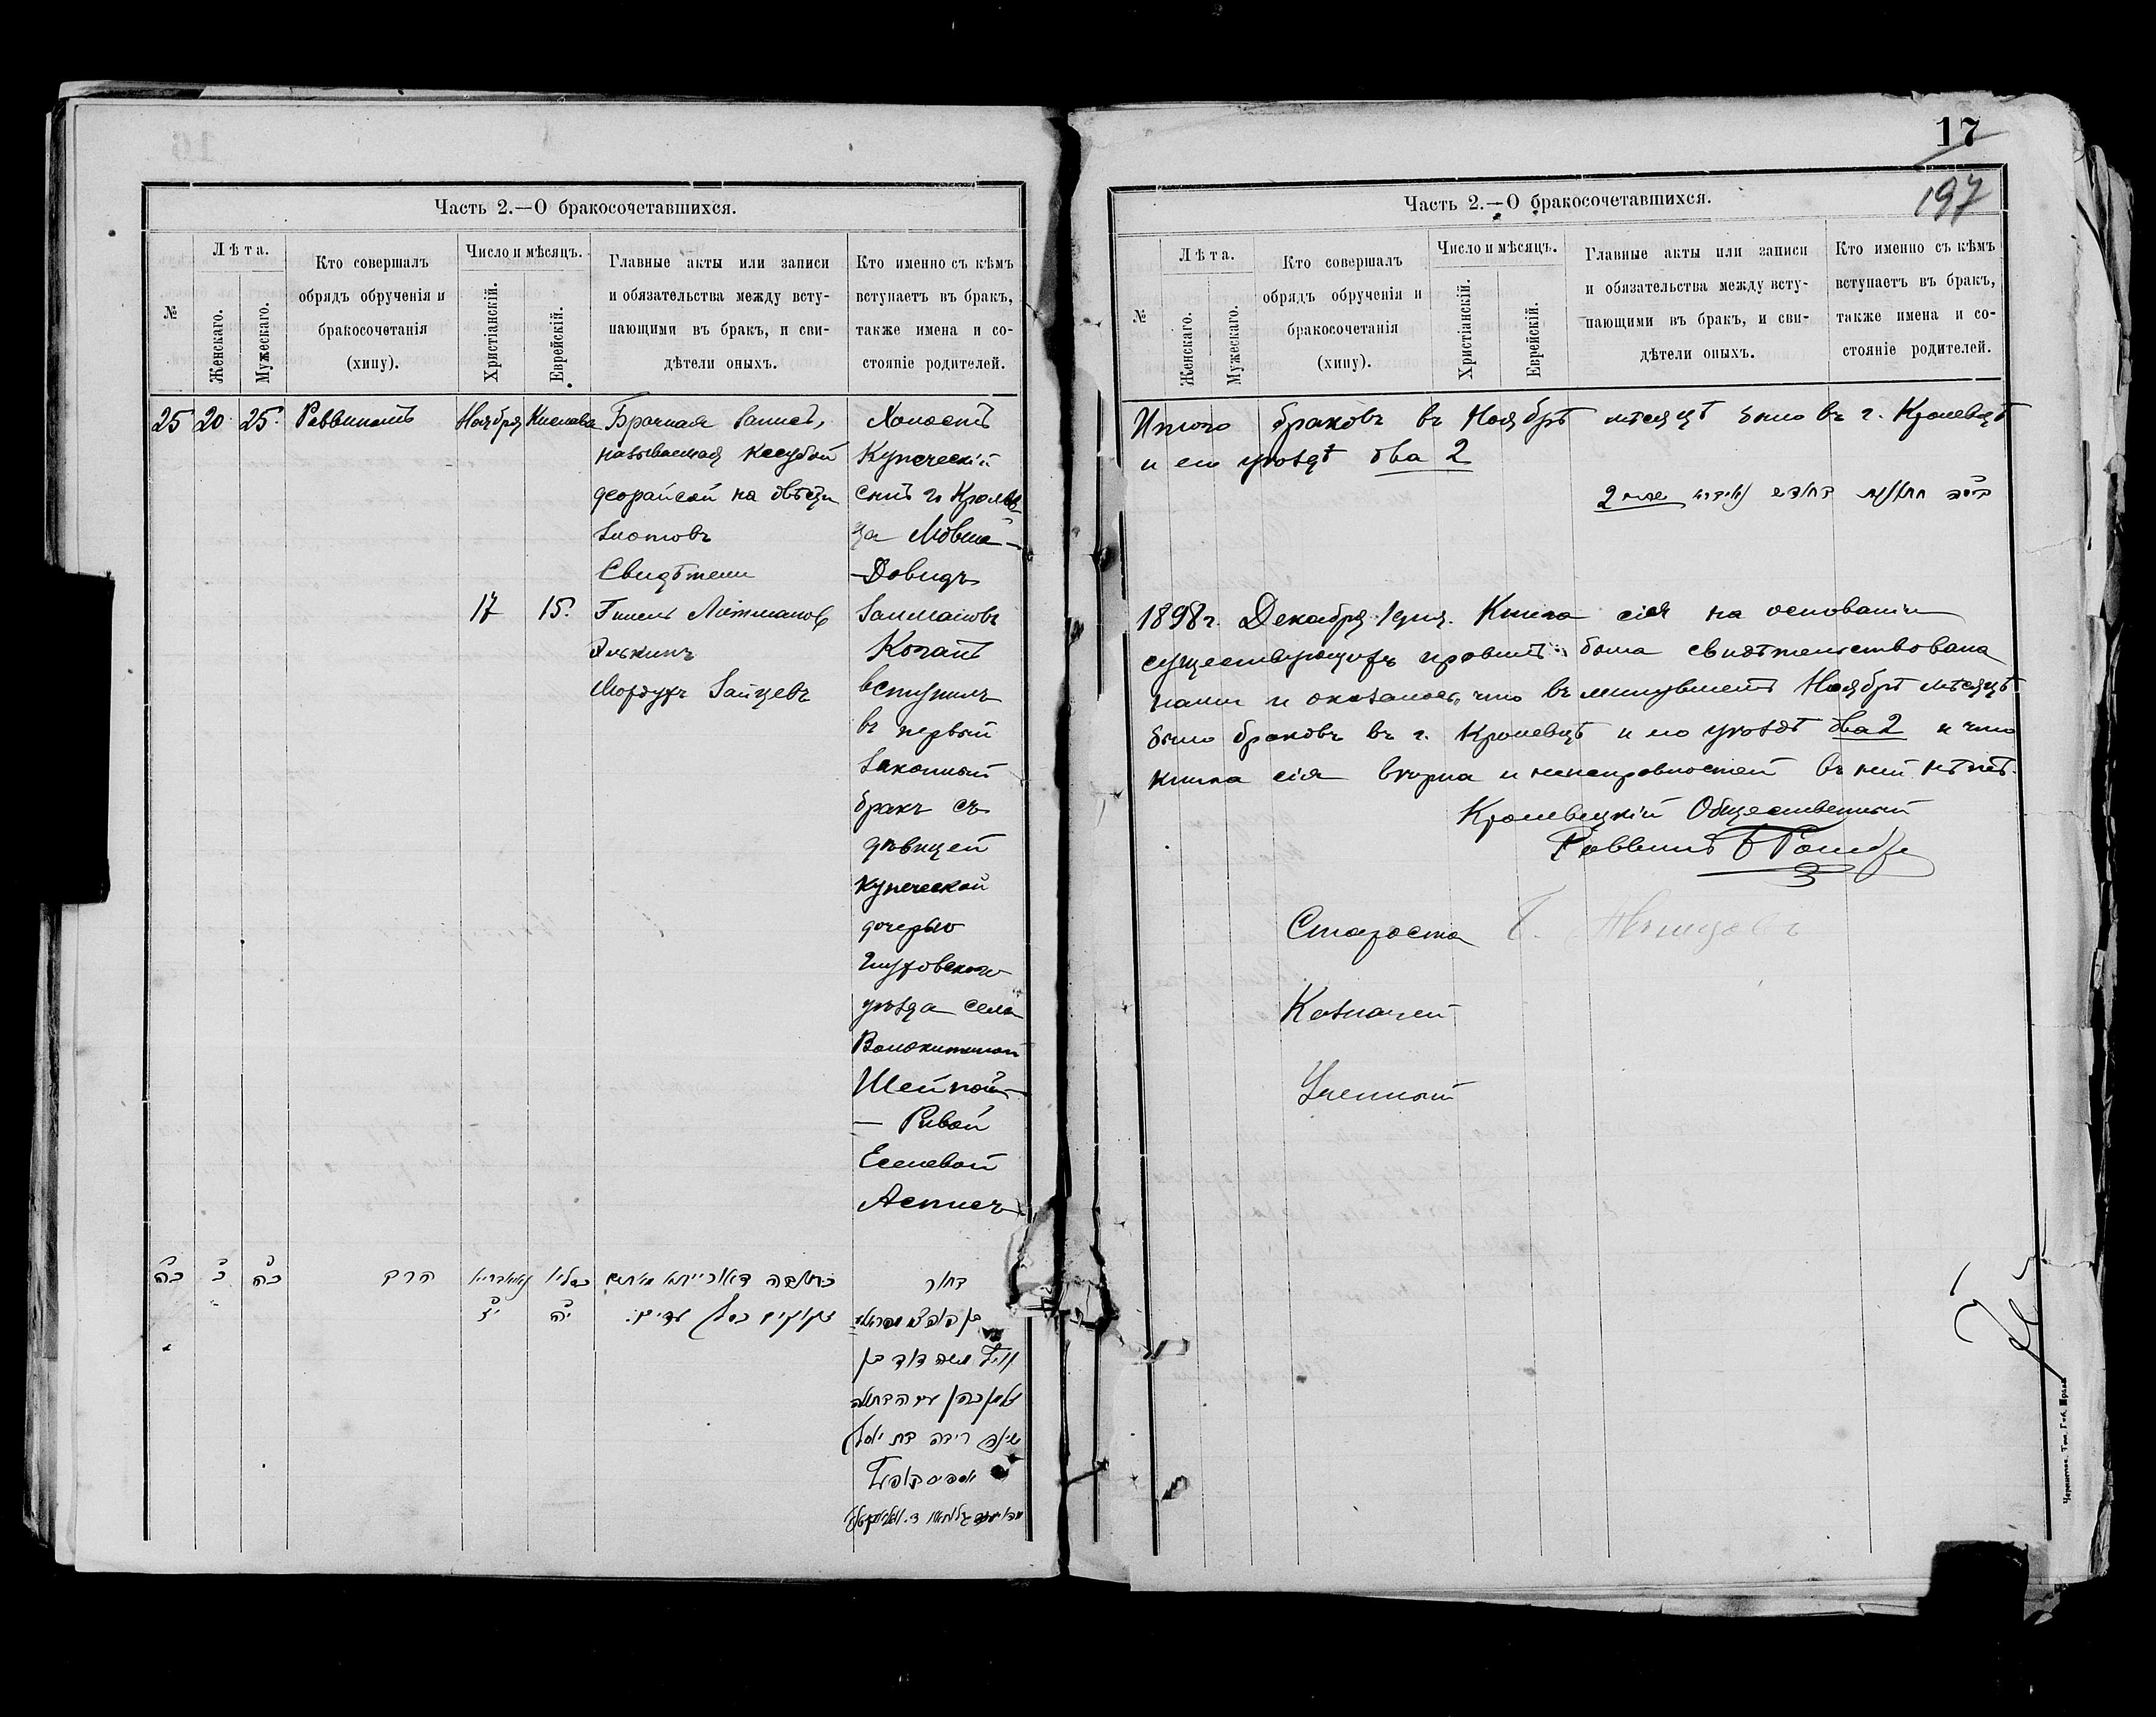 Часть 2.—О бракосочетавшихся.
№
Лѣта.
Женскаго.
Мужескаго.
Кто совершалъ
обрядъ обрученія и
бракосочетанія
(хипу).
Число и мѣсяцъ.
Христіанскій.
Еврейскій.
Главные акты или записи
и обязательства между всту-
пающими въ бракъ, и сви-
дѣтели оныхъ.
Кто именно съ кѣмъ
вступаетъ въ бракъ,
также имена и со-
стояніе родителей.
25
20
25
Раввинатъ
Ноября
17
Кислева
15
Брачная запись,
называемая кесубой
деорайсой на двѣсти
злотовъ
Свидѣтели
Литманов
Элькинъ
Мордухъ Зайцевъ
Холостъ
Купеческій
сынъ г. Кролев-
ца Мовша-
-Довидъ
Залмановъ
Коганъ
вступилъ
въ первый
законный
бракъ съ
дѣвицей
купеческой
дочерью
Глуховского
уѣзда села
Волокитиной
Шейной-
— Ривой
Еселевой
כ״ה
כ׳
כ״ה
הרב
י״ז
כסליו
י״ה
כתובה דאורייתא מאתים
זקוקים כסף עדים:
בחור
משה דוד בן
זלמן כהן עם הבתולה
שיינה ריבה בת יוסף
17
197
Часть 2.—О бракосочетавшихся.
№
Лѣта.
Женскаго.
Мужескаго.
Кто совершалъ
обрядъ обрученія и
бракосочетанія
(хипу).
Число и мѣсяцъ.
Христіанскій.
Еврейскій.
Главные акты или записи
и обязательства между всту-
пающими въ бракъ, и сви-
дѣтели оныхъ.
Кто именно съ кѣмъ
вступаетъ въ бракъ,
также имена и со-
стояніе родителей.
Итого браковъ въ Ноябрѣ мѣсяцѣ было въ г. Кролевцѣ
и его уѣздѣ два 2
בחודש 2
1898 г. Декабря 1 дня. Книга сія на основаніи
существующихъ правилъ была свидѣтельствована
нами и оказалось, что въ минувшемъ Ноябрѣ мѣсяцѣ
было браковъ въ г. Кролевцѣ и его уѣздѣ два 2 и что
книга сія вѣрна и неисправностей въ ней нѣтъ.
Кролевецкій Общественный
Раввинъ
Староста
Казначей
Ученый